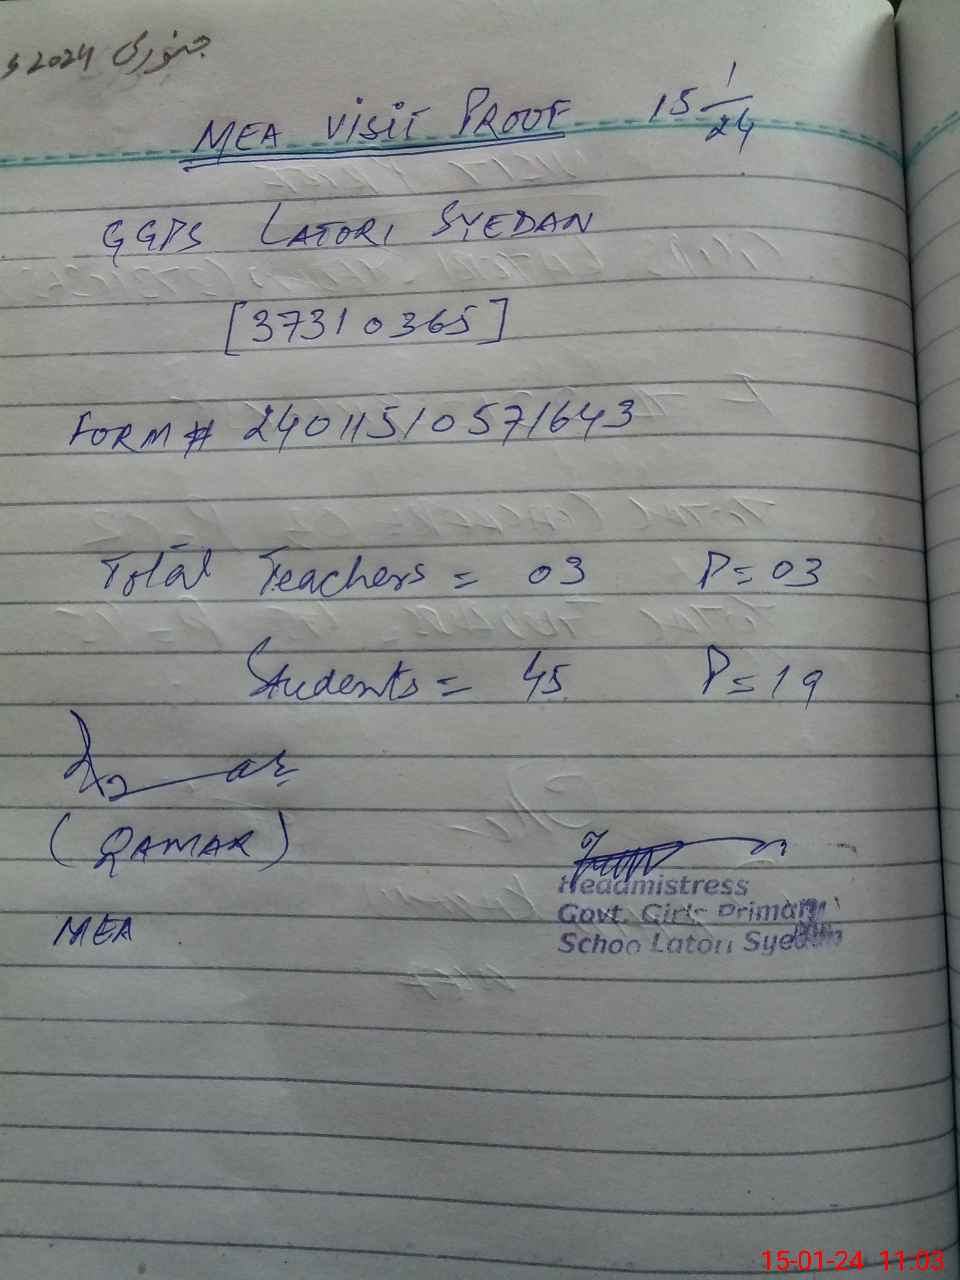 جنوری 2024 ء
MEA VISIT PROOF 15 1/24
GGPS LATORI SYEDAN
[37310365]
FORM # 24011510571643
Total Teachers = 03 P = 03
Students = 45 P = 19
(QAMAR)
MEA
Headmistress
Govt. Girls Primary
Schoo Latori Syedan
15-01-24 11:03